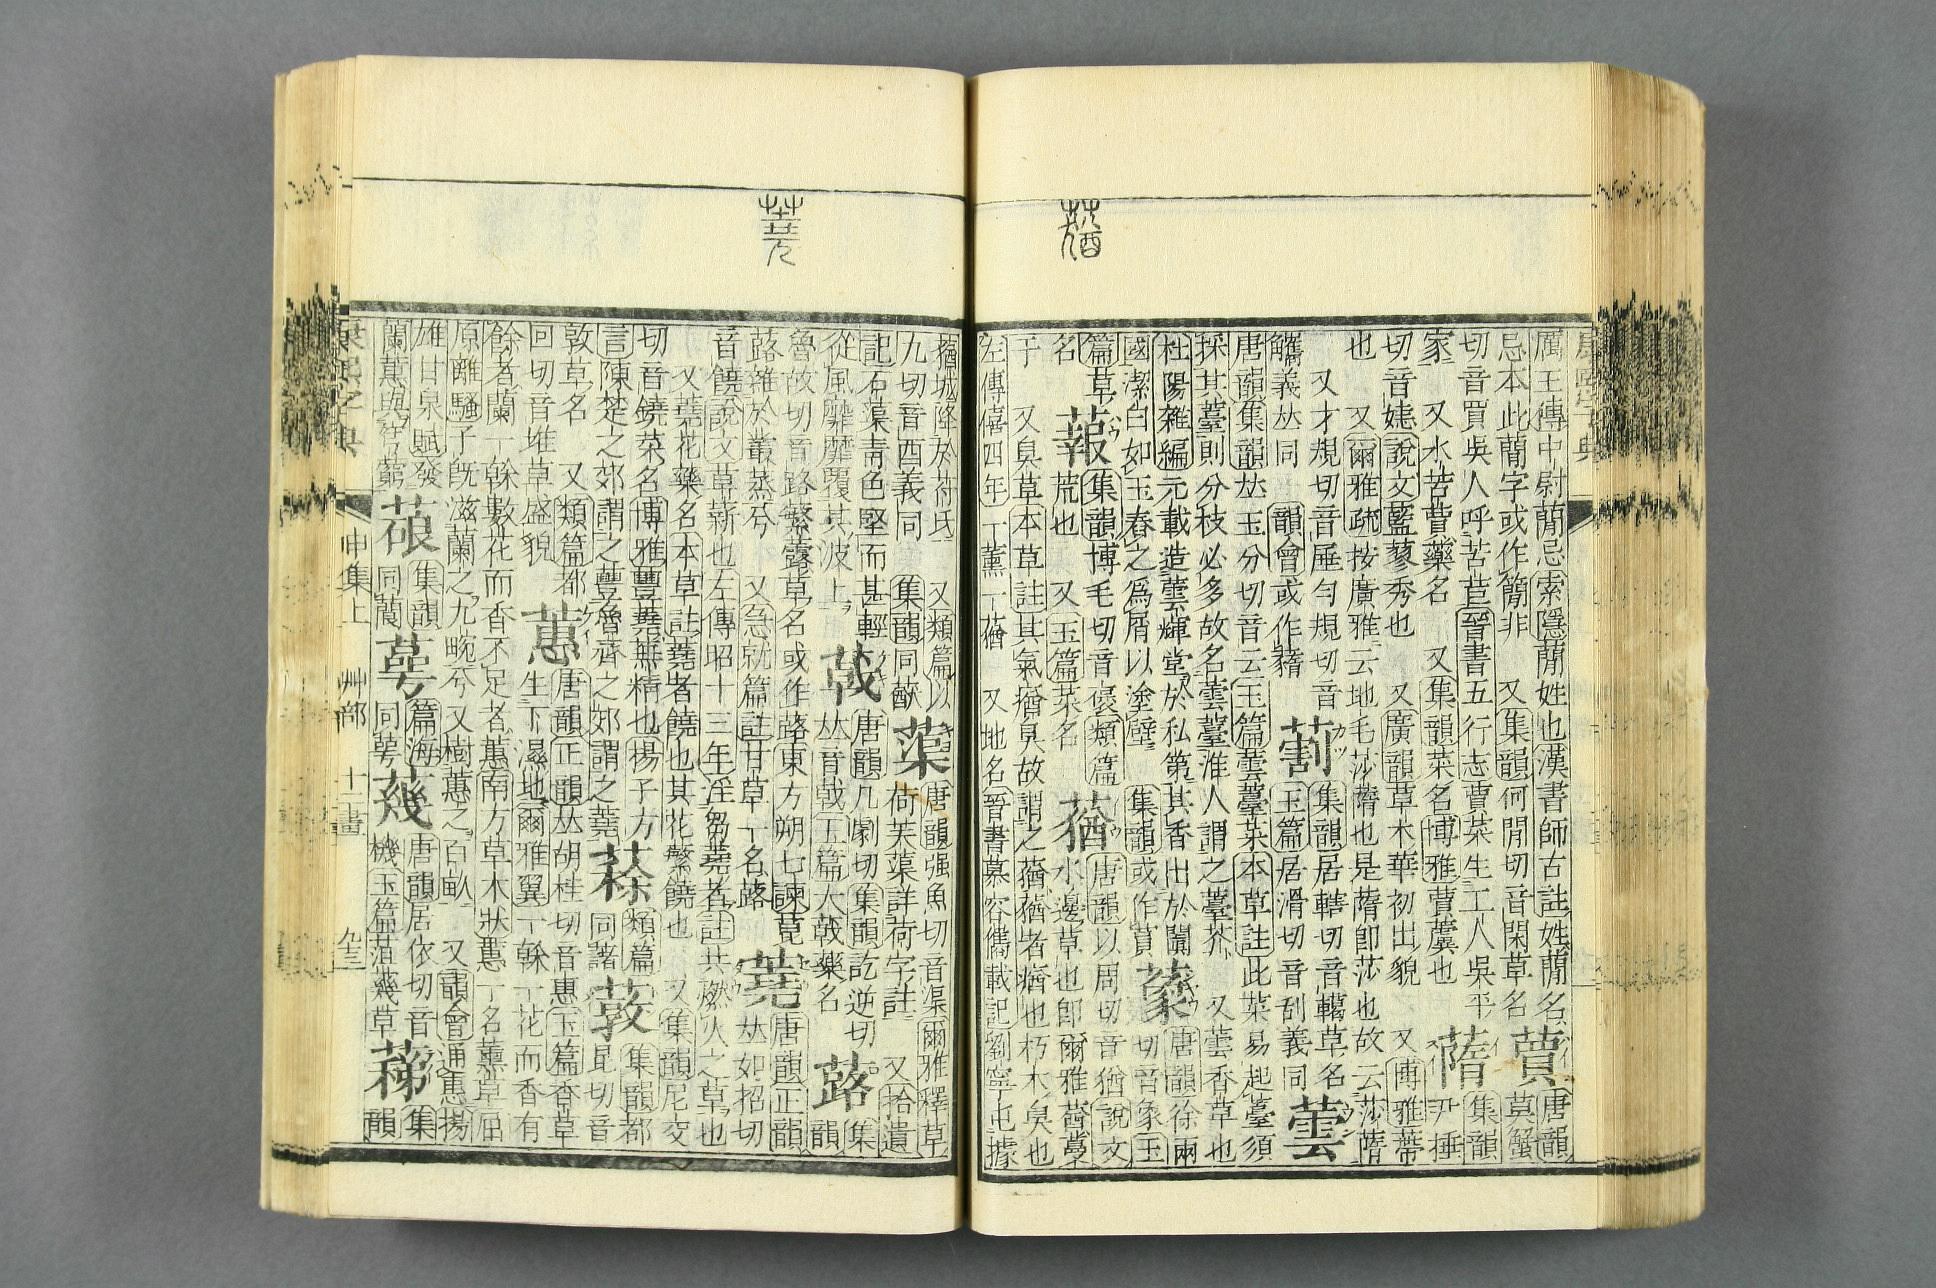 厲王傳中尉蕑忌索隱蕑姓也漢書師古註姓蕑名
忌本此蕑字或作簡非　又集韻何閒切音閑草名
蕒
唐韻莫蟹
切音買吳人呼苦苣晉書五行志蕒菜生工人吳平
家　又水苦蕒藥名　又集韻菜名博雅蕒蘪也
蓨
集韻尹捶
切音𡝩說文藍蓼秀也　又廣韻草木華初出貌　又博雅蔕
也　又爾雅疏按廣雅云地毛莎蓨也是蓨卽莎也故云莎蓨
又才規切音厜勻規切音
觿義𠀤同　韻會或作䕳
葪
集韻居轄切音鞨草名
玉篇居滑切音刮義同
蕓
唐韻集韻𠀤王分切音云玉篇蕓薹菜本草註此菜易起薹須
採其薹則分枝必多故名蕓薹淮人謂之薹芥　又蕓香草也
杜陽雜編元載造蕓輝堂於私第其香出於闐
國潔白如玉舂之爲屑以塗壁　集韻或作
蒙
唐韻徐兩
切音象玉
篇草
名
蕔
集韻博毛切音褒類篇
荒也　又玉篇菜名
蕕
唐韻以周切音猶說文
水邊草也卽爾雅茜蔓
于　又臭草本草註其氣蕕臭故謂之蕕蕕者蕕也朽木臭也
左傳僖四年一薰一蕕　又地名晉書慕容儁載記劉寧屯據
蕕城降於苻氏　又類篇以
九切音酉義同　集韻同蒣
蕖
唐韻强魚切音渠爾雅釋草
荷芙蕖詳荷字註　又拾遺
記石蕖靑色堅而甚輕
從風靡靡覆其波上
𦽅
唐韻几劇切集韻訖逆切
𠀤音戟玉篇大戟藥名
蕗
集
韻
魯故切音路繁露草名或作蕗東方朔七諫菎
蕗雜於叢蒸兮　又急就篇註甘草一名蕗
蕘
唐韻正韻
𠀤如招切
音饒說文草薪也左傳昭十三年淫芻蕘者註共燃火之草也
又蕘花藥名本草註蕘者饒也其花繁饒也　又集韻尼交
切音鐃菜名博雅蘴蕘蕪精也揚子方
言陳楚之郊謂之蘴魯齊之郊謂之蕘
蕠
類篇
同蕏
蕟
集韻都
昆切音
敦草名　又類篇都
回切音堆草盛貌
蕙
唐韻正韻𠀤胡桂切音惠玉篇香草
生下濕地爾雅翼一榦一花而香有
餘者蘭一榦數花而香不足者蕙南方草木狀蕙一名薰草屈
原離騷子旣滋蘭之九畹兮又樹蕙之百畝　又韻會通憓揚
雄甘泉賦發
蘭蕙與芎藭
蒗
集韻
同䕞
蕚
篇海
同萼
蕺
唐韻居依切音
機玉篇菹蕺草
䔑
集
韻
康熙字典
申集上　艸部　十二畫　九三